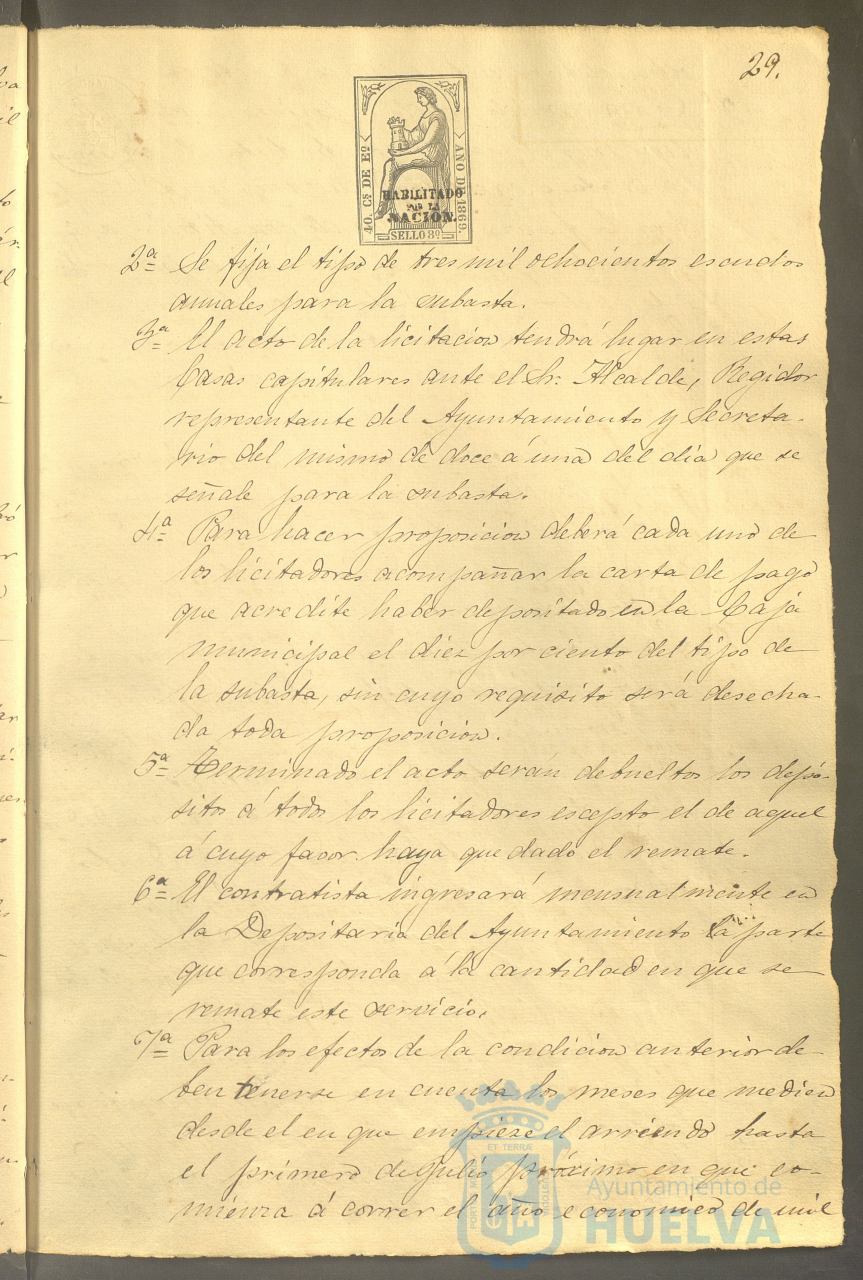 29.
40. Cs DE Eo
AÑO DE 1869.
HABILITADO
POR LA
NACION.
SELLO 3º
2ª Se fija el tipo de tres mil ochocientos escudos
anuales para la subasta.
3ª El acto de la licitacion tendrá lugar en estas
Casas capitulares ante el Sr. Alcalde, Regidor
representante del Ayuntamiento y Secreta-
rio del mismo de doce á una del dia que se
señale para la subasta.
4ª Para hacer proposicion deberá cada uno de
los licitadores acompañar la carta de pago
que acredite haber depositado en la Caja
municipal el diez por ciento del tipo de
la subasta, sin cuyo requisito será desecha-
da toda proposicion.
5ª Terminado el acto serán debueltos los depó-
sitos á todos los licitadores escepto el de aquel
á cuyo favor haya quedado el remate.
6ª El contratista ingresará mensualmente en
la Depositaria del Ayuntamiento la parte
que corresponda á la cantidad en que se
remate este servicio.
7ª Para los efectos de la condicion anterior de-
ben tenerse en cuenta los meses que medien
desde el en que empieze el arriendo hasta
el primero de Julio próximo en que co-
mienza á correr el año economico de mil
ET TERRÆ
Ayuntamiento de
HUELVA